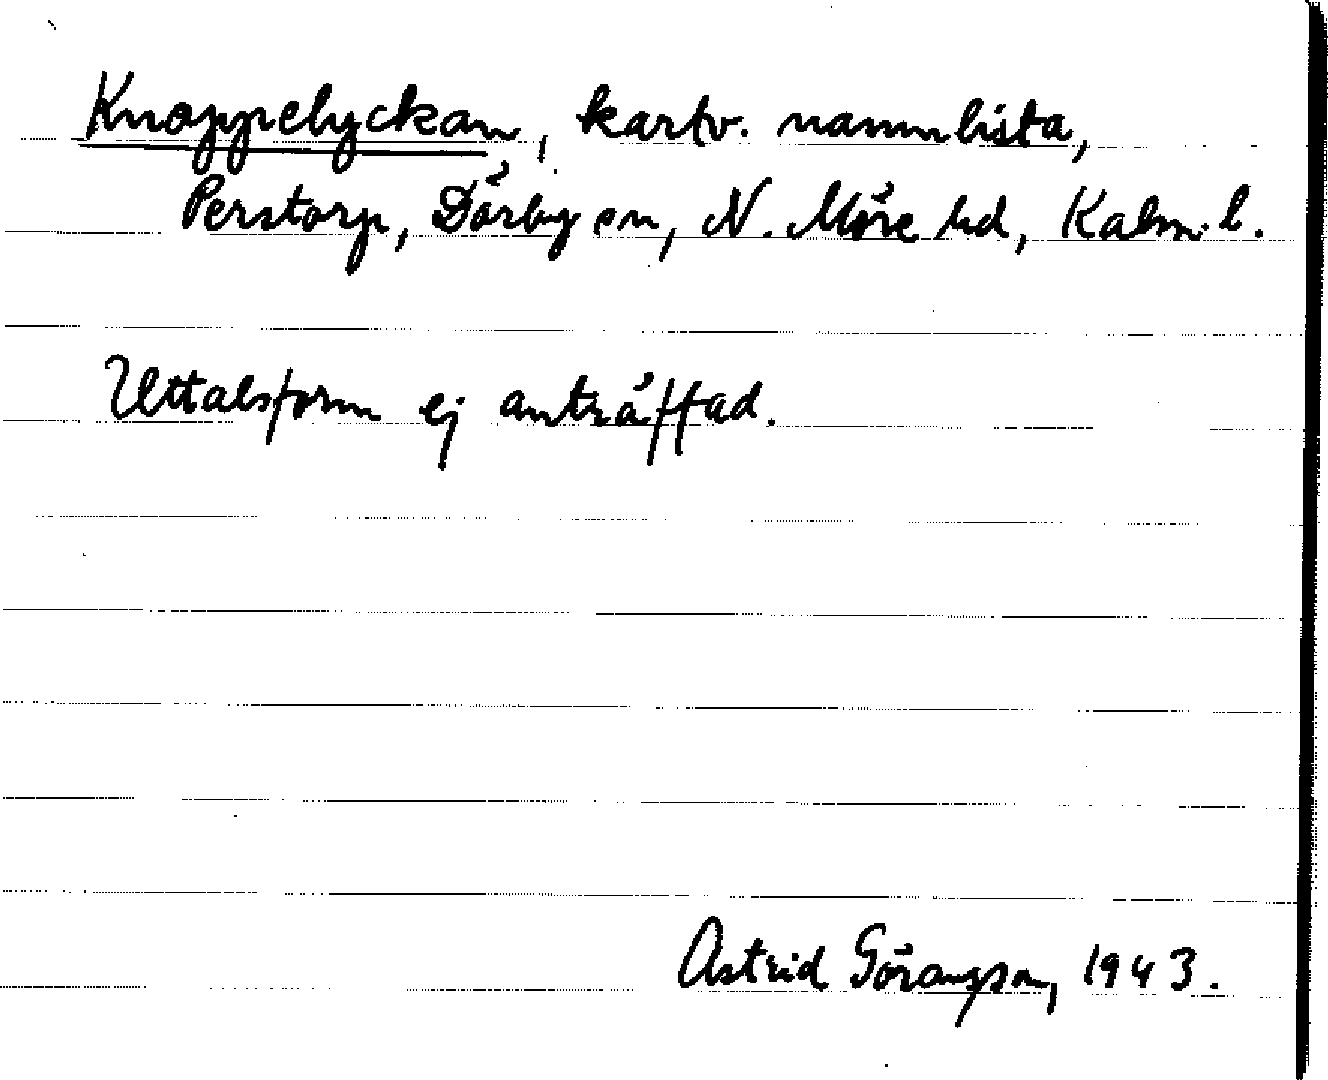 Knappelyckan, kartv. namnlista,
Perstorp, Dörby sn, N. Möre hd, Kalm. l.
Uttalsform ej anträffad.
Astrid Göransson, 1943.